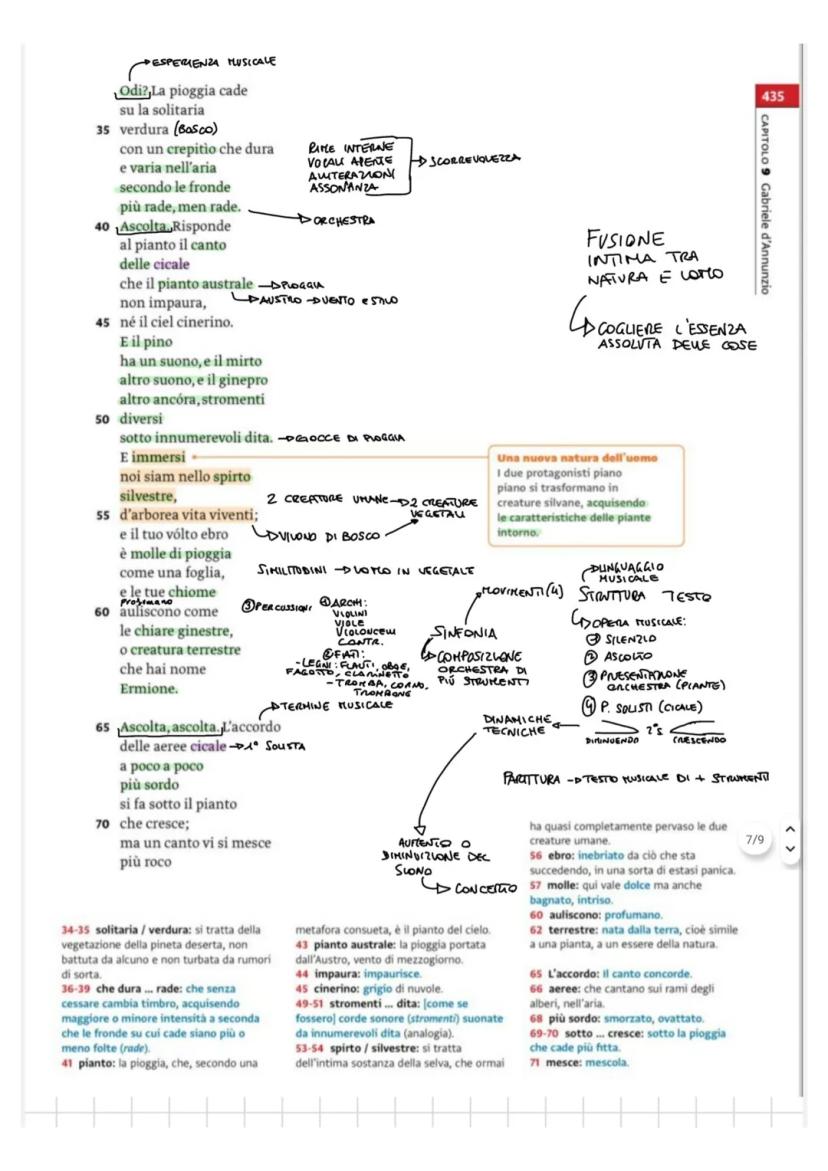 ESPERIENZA MUSICALE
Odi? La pioggia cade
su la solitaria
35 verdura (BOSCO)
con un crepitìo che dura
e varia nell'aria
secondo le fronde
più rade, men rade.
RIME INTERNE
VOCALI APERTE
ALLITERAZIONI
ASSONANZA
SCORREVOLEZZA
ORCHESTRA
40 Ascolta. Risponde
al pianto il canto
delle cicale
che il pianto australe → PIOGGIA
AUSTRO → VENTO ESTIVO
non impaura,
45 né il ciel cinerino.
E il pino
ha un suono, e il mirto
altro suono, e il ginepro
altro ancóra, stromenti
50 diversi
sotto innumerevoli dita. → GOCCE DI PIOGGIA
E immersi
noi siam nello spirto
silvestre,
55 d'arborea vita viventi;
e il tuo vólto ebro
è molle di pioggia
come una foglia,
e le tue chiome
profumano
60 auliscono come
le chiare ginestre,
o creatura terrestre
che hai nome
Ermione.
65 Ascolta, ascolta. L'accordo
delle aeree cicale → 1° SOLISTA
a poco a poco
più sordo
si fa sotto il pianto
70 che cresce;
ma un canto vi si mesce
più roco
435
CAPITOLO 9 Gabriele d'Annunzio
FUSIONE
INTIMA TRA
NATURA E UOMO
COGLIERE L'ESSENZA
ASSOLUTA DELLE COSE
Una nuova natura dell'uomo
I due protagonisti piano
piano si trasformano in
creature silvane, acquisendo
le caratteristiche delle piante
intorno.
2 CREATURE UMANE → 2 CREATURE
VEGETALI
VIVONO DI BOSCO
SIMILITUDINI → UOMO IN VEGETALE
③ PERCUSSIONI
① ARCHI:
VIOLINI
VIOLE
VIOLONCELLI
CONTR.
② FIATI:
- LEGNI: FLAUTI, OBOE,
FAGOTTO, CLARINETTO
- TROMBA, CORNO,
TROMBONE
TERMINE MUSICALE
MOVIMENTI (4)
SINFONIA
COMPOSIZIONE
ORCHESTRA DI
PIÚ STRUMENTI
LINGUAGGIO
MUSICALE
STRUTTURA TESTO
OPERA MUSICALE:
① SILENZIO
② ASCOLTO
③ PRESENTAZIONE
ORCHESTRA (PIANTE)
④ P. SOLISTI (CICALE)
DINAMICHE
TECNICHE
DIMINUENDO
CRESCENDO
PARTITURA → TESTO MUSICALE DI + STRUMENTI
AUMENTO O
DIMINUIZIONE DEL
SUONO
CONCERTO
7/9
34-35 solitaria / verdura: si tratta della
vegetazione della pineta deserta, non
battuta da alcuno e non turbata da rumori
di sorta.
36-39 che dura ... rade: che senza
cessare cambia timbro, acquisendo
maggiore o minore intensità a seconda
che le fronde su cui cade siano più o
meno folte (rade).
41 pianto: la pioggia, che, secondo una
metafora consueta, è il pianto del cielo.
43 pianto australe: la pioggia portata
dall'Austro, vento di mezzogiorno.
44 impaura: impaurisce.
45 cinerino: grigio di nuvole.
49-51 stromenti ... dita: [come se
fossero] corde sonore (stromenti) suonate
da innumerevoli dita (analogia).
53-54 spirto / silvestre: si tratta
dell'intima sostanza della selva, che ormai
ha quasi completamente pervaso le due
creature umane.
56 ebro: inebriato da ciò che sta
succedendo, in una sorta di estasi panica.
57 molle: qui vale dolce ma anche
bagnato, intriso.
60 auliscono: profumano.
62 terrestre: nata dalla terra, cioè simile
a una pianta, a un essere della natura.
65 L'accordo: Il canto concorde.
66 aeree: che cantano sui rami degli
alberi, nell'aria.
68 più sordo: smorzato, ovattato.
69-70 sotto ... cresce: sotto la pioggia
che cade più fitta.
71 mesce: mescola.